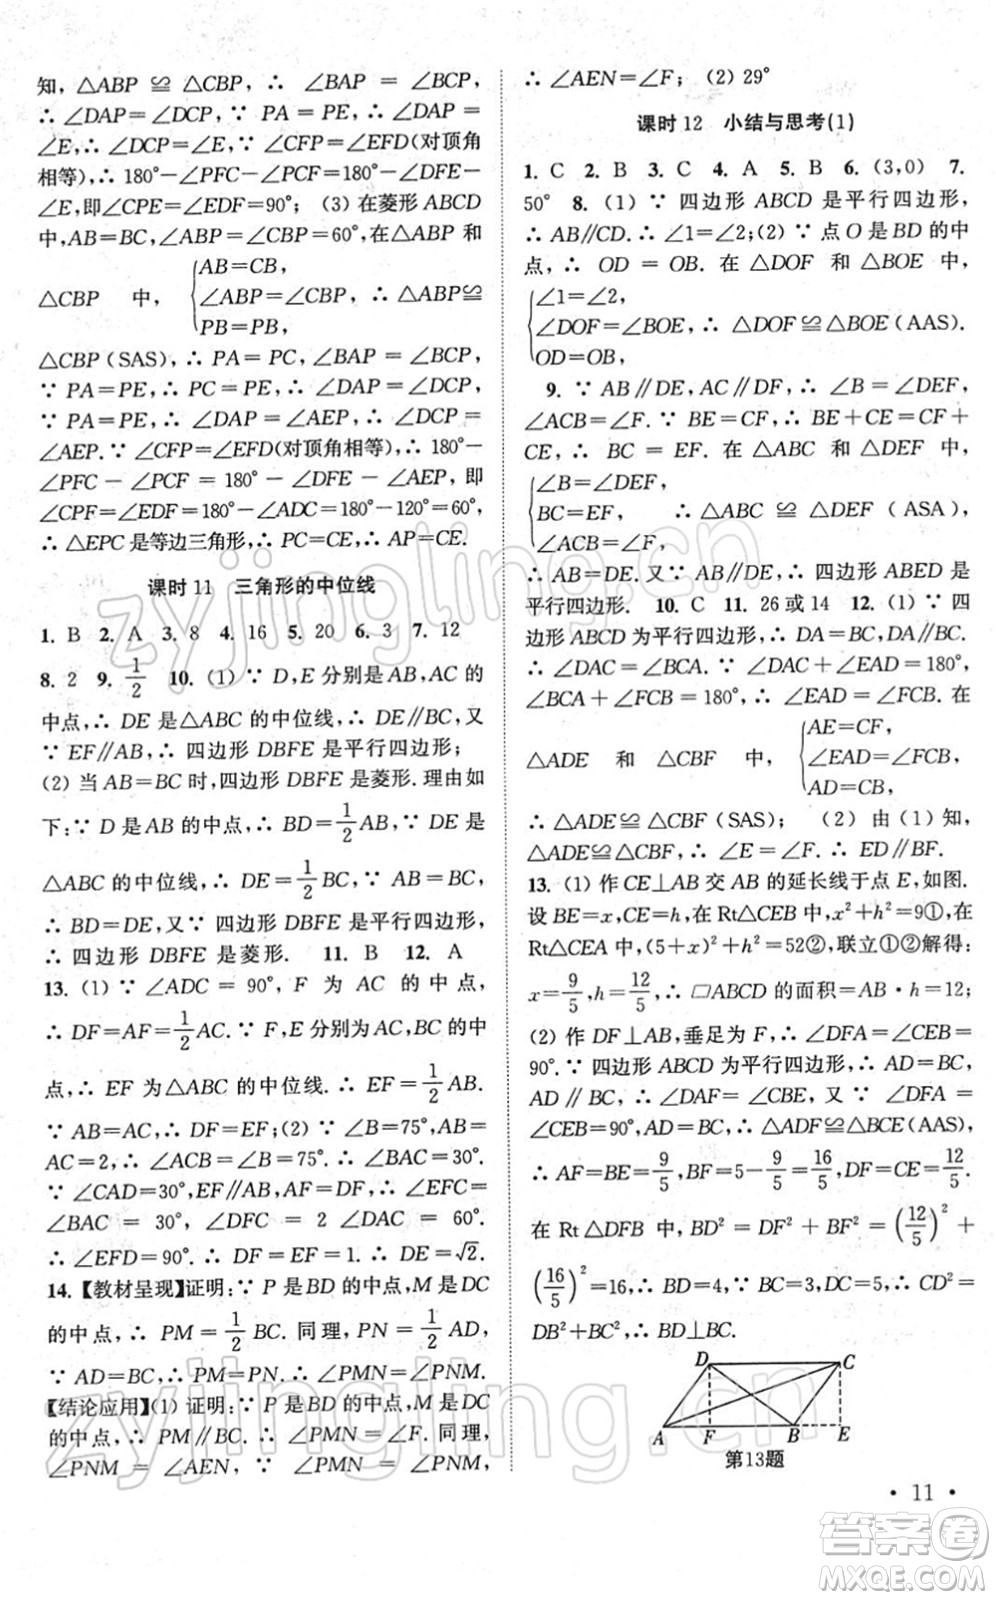 知，△ABP ≌ △CBP，∴ ∠BAP = ∠BCP，
∴ ∠DAP=∠DCP，∵ PA=PE，∴ ∠DAP=
∠E，∴ ∠DCP=∠E，∵ ∠CFP=∠EFD(对顶角
相等)，∴ 180°－∠PFC－∠PCF=180°－∠DFE－
∠E，即∠CPE=∠EDF=90°；(3) 在菱形ABCD
中，AB=BC，∠ABP=∠CBP=60°，在△ABP 和
△CBP 中，{AB=CB，
∠ABP=∠CBP，∴ △ABP≌
PB=PB，
△CBP (SAS)，∴ PA=PC，∠BAP=∠BCP，
∵ PA=PE，∴ PC=PE，∴ ∠DAP=∠DCP，
∵ PA=PE，∴ ∠DAP=∠AEP，∴ ∠DCP=
∠AEP.∵ ∠CFP=∠EFD(对顶角相等)，∴ 180°－
∠PFC－∠PCF=180°－∠DFE－∠AEP，即
∠CPF=∠EDF=180°－∠ADC=180°－120°=60°，
∴ △EPC是等边三角形，∴ PC=CE，∴ AP=CE.
课时11 三角形的中位线
1. B 2. A 3. 8 4. 16 5. 20 6. 3 7. 12
8. 2 9. 1/2 10. (1) ∵ D，E分别是AB，AC的
中点，∴ DE 是△ABC 的中位线，∴ DE∥BC，又
∵ EF∥AB，∴ 四边形 DBFE 是平行四边形；
(2) 当AB=BC时，四边形DBFE是菱形. 理由如
下：∵ D是AB的中点，∴ BD=1/2AB，∵ DE是
△ABC 的中位线，∴ DE=1/2BC，∵ AB=BC，
∴ BD=DE，又∵ 四边形 DBFE 是平行四边形，
∴ 四边形 DBFE 是菱形. 11. B 12. A
13. (1) ∵ ∠ADC = 90°，F 为 AC 的中点，
∴ DF=AF=1/2AC. ∵ F，E分别为AC，BC的中
点，∴ EF 为△ABC 的中位线.∴ EF=1/2AB.
∵ AB=AC，∴ DF=EF；(2) ∵ ∠B=75°，AB=
AC=2，∴ ∠ACB=∠B=75°. ∴ ∠BAC=30°.
∵ ∠CAD=30°，EF∥AB，AF=DF，∴ ∠EFC=
∠BAC = 30°，∠DFC = 2 ∠DAC = 60°.
∴ ∠EFD=90°. ∴ DF=EF=1. ∴ DE=√2.
14. 【教材呈现】证明：∵ P是BD的中点，M是DC
的中点，∴ PM=1/2BC. 同理，PN=1/2AD，
∵ AD=BC，∴ PM=PN. ∴ ∠PMN=∠PNM.
【结论应用】(1) 证明：∵ P是BD的中点，M是DC
的中点，∴ PM∥BC，∴ ∠PMN=∠F. 同理，
∠PNM = ∠AEN，∵ ∠PMN = ∠PNM，
∴ ∠AEN=∠F；(2) 29°
课时12 小结与思考(1)
1. C 2. B 3. C 4. A 5. B 6. (3,0) 7.
50° 8. (1) ∵ 四边形 ABCD 是平行四边形，
∴ AB∥CD.∴ ∠1=∠2；(2) ∵ 点O是BD的中
点，∴ OD = OB. 在 △DOF 和 △BOE 中，
{∠1=∠2，
∠DOF=∠BOE，∴ △DOF≌△BOE (AAS).
OD=OB，
9. ∵ AB∥DE，AC∥DF，∴ ∠B=∠DEF，
∠ACB=∠F. ∵ BE=CF，∴ BE+CE=CF+
CE，∴ BC = EF. 在 △ABC 和 △DEF 中，
{∠B=∠DEF，
BC=EF， ∴ △ABC ≌ △DEF (ASA)，
∠ACB=∠F，
∴ AB=DE. ∵ AB∥DE，∴ 四边形 ABED 是
平行四边形. 10. C 11. 26或14 12. (1) ∵ 四
边形 ABCD 为平行四边形，∴ DA=BC，DA∥BC.
∴ ∠DAC=∠BCA. ∵ ∠DAC+∠EAD=180°，
∠BCA+∠FCB=180°，∴ ∠EAD=∠FCB. 在
△ADE 和 △CBF 中，{AE=CF，
∠EAD=∠FCB，
AD=CB，
∴ △ADE≌△CBF (SAS)； (2) 由(1)知，
△ADE≌△CBF，∴ ∠E=∠F. ∴ ED∥BF.
13. (1) 作CE⊥AB交AB的延长线于点E，如图.
设BE=x，CE=h，在Rt△CEB中，x²+h²=9①，在
Rt△CEA中，(5+x)²+h²=52②，联立①②解得：
x=9/5，h=12/5，∴ ▱ABCD的面积=AB·h=12；
(2) 作DF⊥AB，垂足为F，∴ ∠DFA=∠CEB=
90°. ∵ 四边形ABCD为平行四边形，∴ AD=BC，
AD∥BC，∴ ∠DAF=∠CBE，又∵ ∠DFA=
∠CEB=90°，AD=BC，∴ △ADF≌△BCE(AAS)，
∴ AF=BE=9/5，BF=5－9/5=16/5，DF=CE=12/5.
在 Rt△DFB 中，BD²=DF²+BF²=(12/5)²+
(16/5)²=16，∴ BD=4，∵ BC=3，DC=5，∴ CD²=
DB²+BC²，∴ BD⊥BC.
D C
A F B E
第13题
· 11 ·
zyjingling.cn
zyjingling.cn
答案圈
MXQE.COM